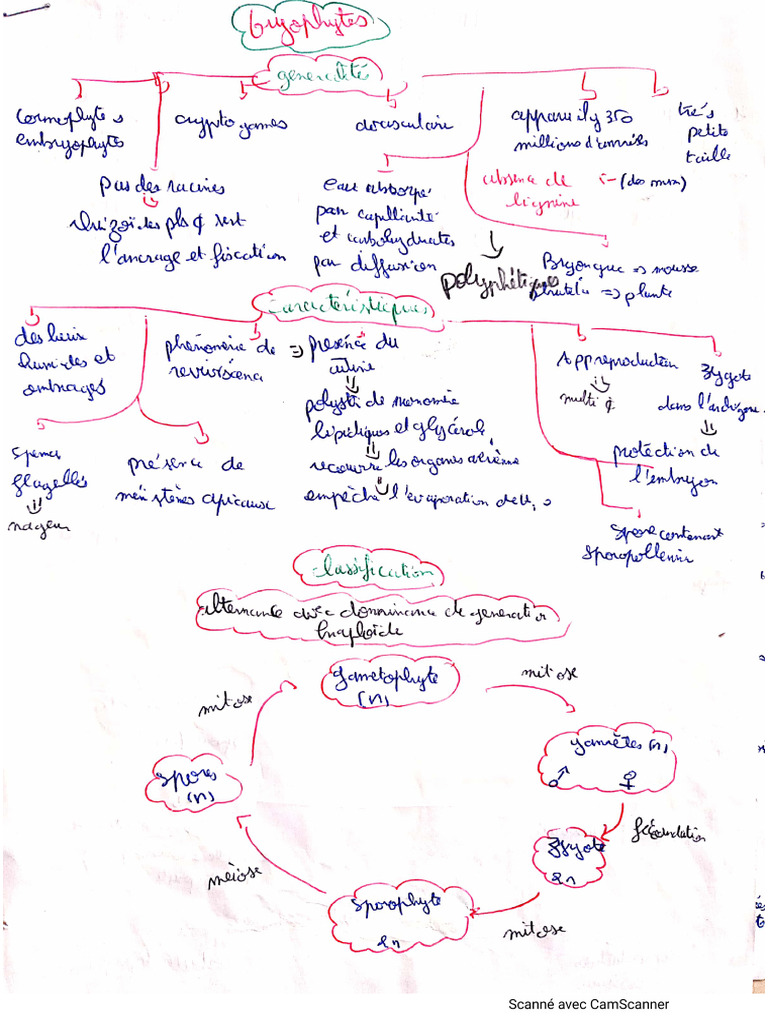 bryophytes
généralité
cormophytes
embryophytes
cryptogames
avasculaire
apparu il y 350
millions d'années
très
petite
taille
pas des racines
rhizoïdes pls φ sert
l'ancrage et fixation
eau absorpé
par capillarité
et carbohydrates
par diffusion
absence de
lignine
(des mm)
polyphétiques
Bryon grec => mousse
phuteia => plante
caractéristiques
des lieux
humides et
ombrages
phénomène de
reviviscence
=> présence du
cutine
polysti de monomère
lipidiques et glycérol
recouvre les organes aérienne
empêche l'évaporation de H2O
App reproduction
multi φ
zygote
dans l'archégone
protection de
l'embryon
spores contenant
sporopollenine
sperme
flagellés
nageur
présence de
méristèmes apicaux
classification
alternance avec dominance de generation
haploïde
gamétophyte
(n)
mitose
gamètes (n)
♂ ♀
fécondation
zygote
2n
mitose
sporophyte
2n
méiose
spores
(n)
mitose
Scanné avec CamScanner